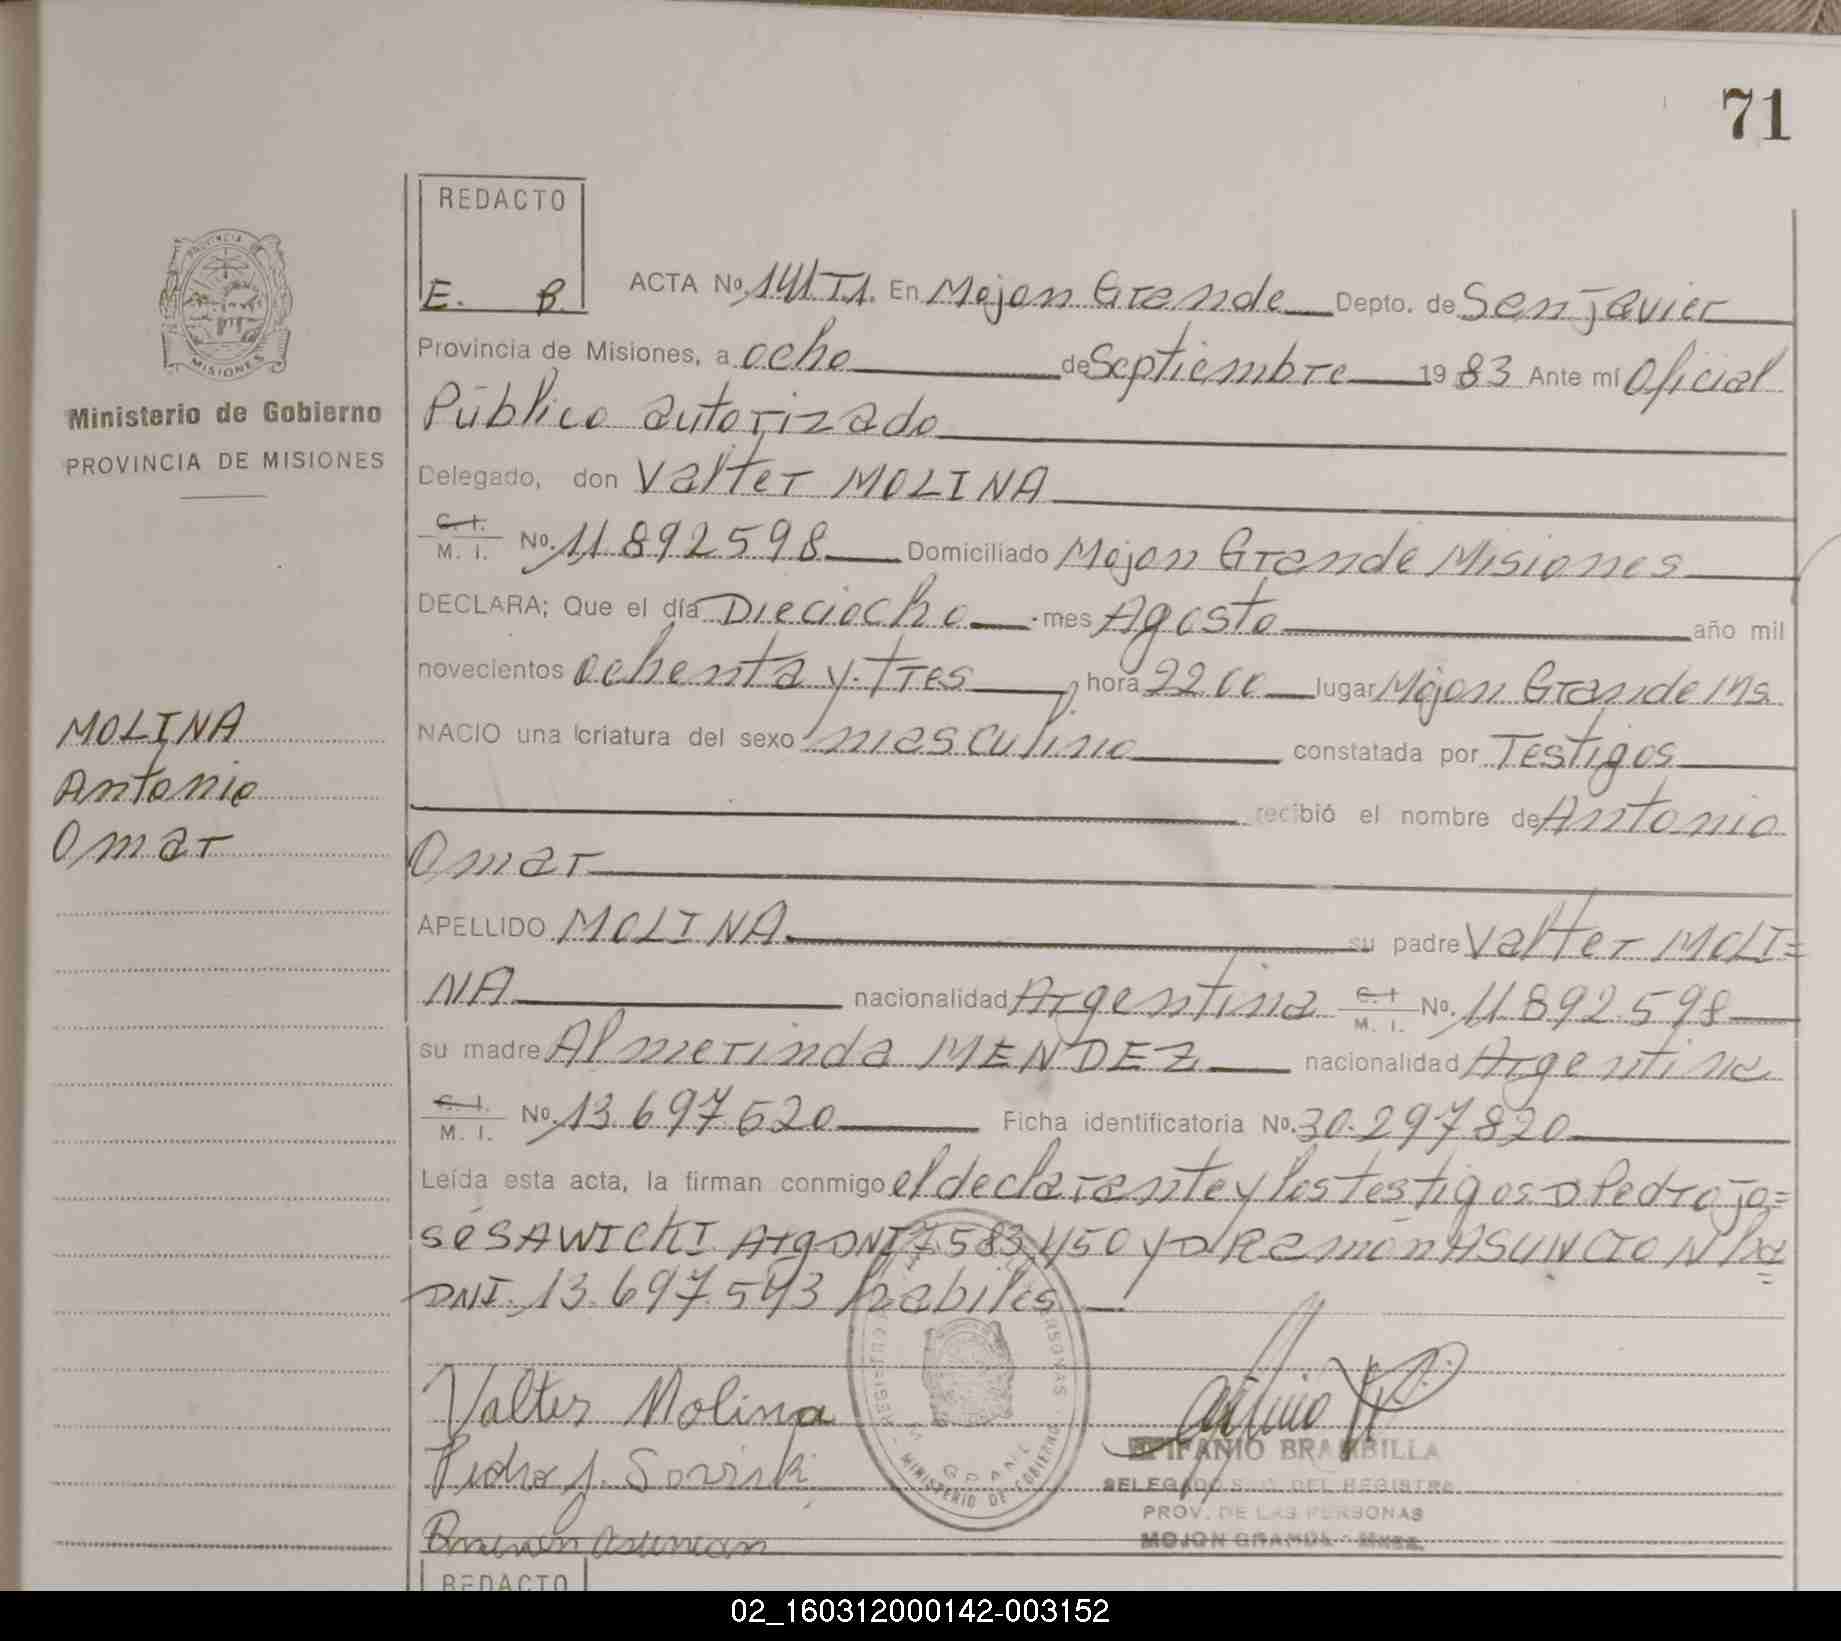 71
REDACTO
E. B.
ACTA No. 141 T1. En Mojon Grande Depto. de San Javier
Provincia de Misiones, a ocho de Septiembre 1983 Ante mí Oficial
Público autorizado
Delegado, don Valter MOLINA
C. I. M. I. No. 11.892.598 Domiciliado Mojon Grande Misiones
DECLARA; Que el día Dieciocho mes Agosto año mil
novecientos ochenta y tres hora 22 00 lugar Mojon Grande Ms.
NACIO una criatura del sexo masculino constatada por Testigos
recibió el nombre de Antonio
Omar
APELLIDO MOLINA su padre Valter MOLI=
NA nacionalidad Argentina C. I. M. I. No. 11.892.598
su madre Almerinda MENDEZ nacionalidad Argentina
C. I. M. I. No. 13.697.620 Ficha identificatoria No. 30.297.820
Leída esta acta, la firman conmigo el declarante y los testigos D Pedro Jo=
sé SAWICKI Arg DNI 7.583.450 y D Ramón ASUNCION
DNI. 13.697.543 habiles
Valter Molina
Pedro J.
EPIFANIO BRAMBILLA
DEL REGISTRO
PROV. DE LAS PERSONAS
MOJON GRANDE
MINISTERIO DE GOBIERNO
REDACTO
PROVINCIA DE
MISIONES
Ministerio de Gobierno
PROVINCIA DE MISIONES
MOLINA
Antonio
Omar
02_160312000142-003152